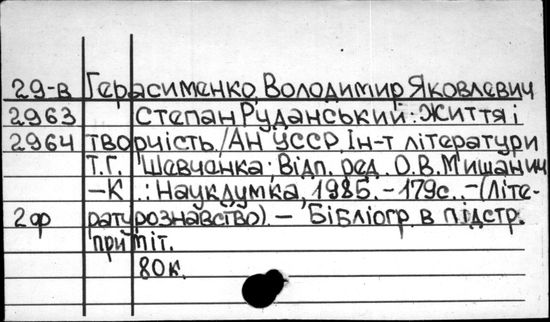 29-в Герасименко, Володимир Яковлевич
2963 Степан Руданський: Життя і
2964 творчість./АН УССР. Ін-т літератури
Т.Г. Шевченка; Відп. ред. О.В.Мишанич
-К.: Наук.думка, 1985. - 179с. - (Літе-
2ф ратурознавство). - Бібліогр. в підстр.
приміт.
80к.